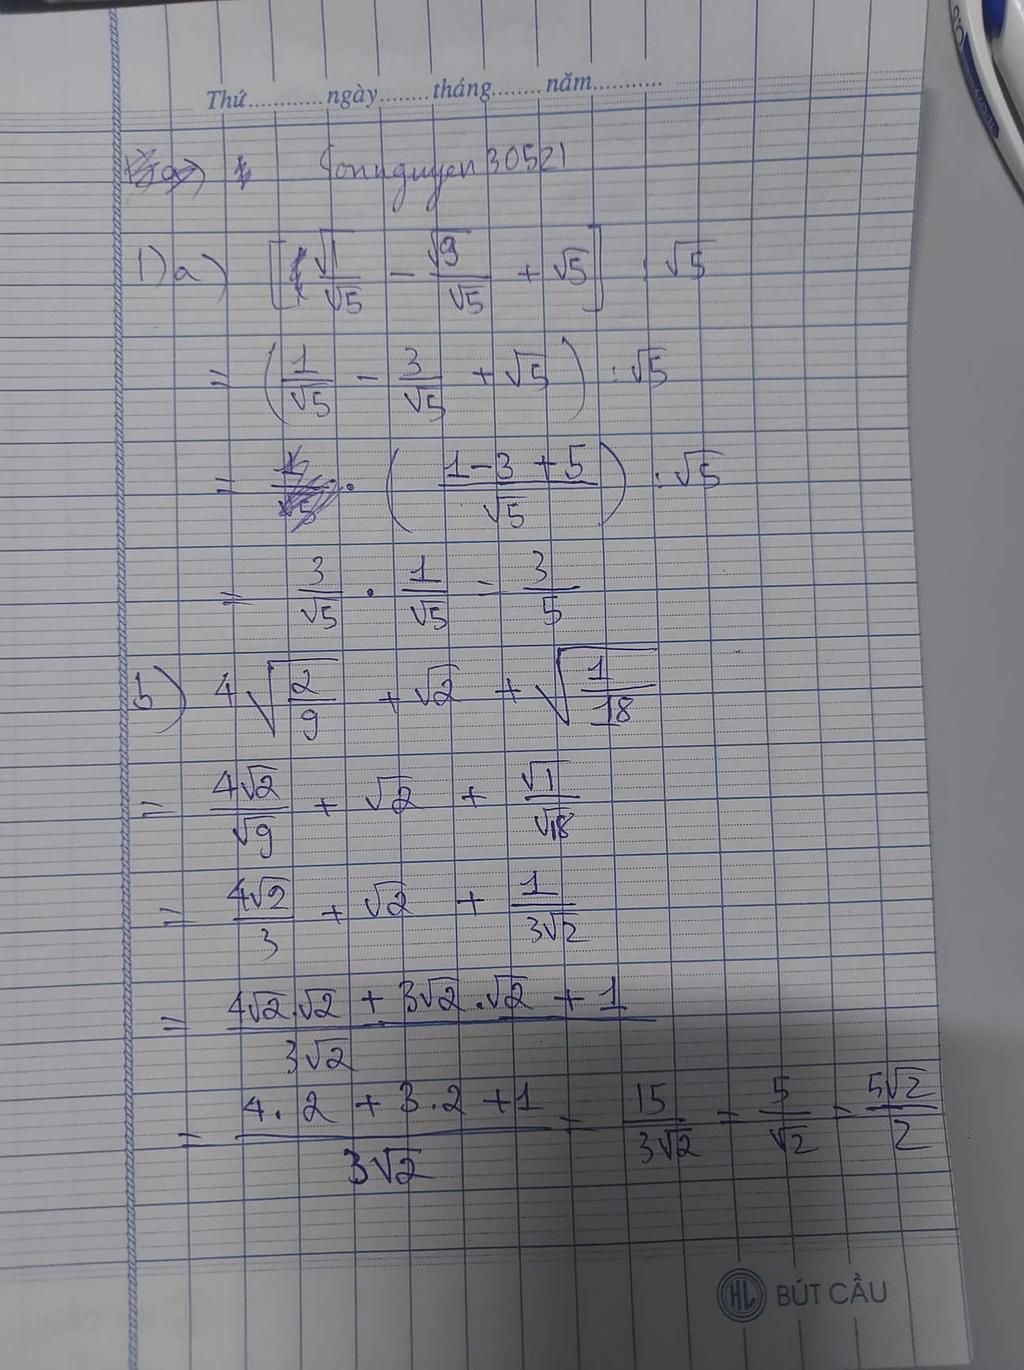 Thứ........... ngày........ tháng........ năm...........
Sonnguyen30521
1) a) [√1/√5 - √9/√5 + √5] : √5
= (1/√5 - 3/√5 + √5) : √5
= ((1-3+5)/√5) : √5
= 3/√5 . 1/√5 = 3/5
b) 4√(2/9) + √2 + √(1/18)
= 4√2/√9 + √2 + √1/√18
= 4√2/3 + √2 + 1/3√2
= (4√2.√2 + 3√2.√2 + 1)/3√2
= (4.2 + 3.2 + 1)/3√2 = 15/3√2 = 5/√2 = 5√2/2
HL BÚT CẦU